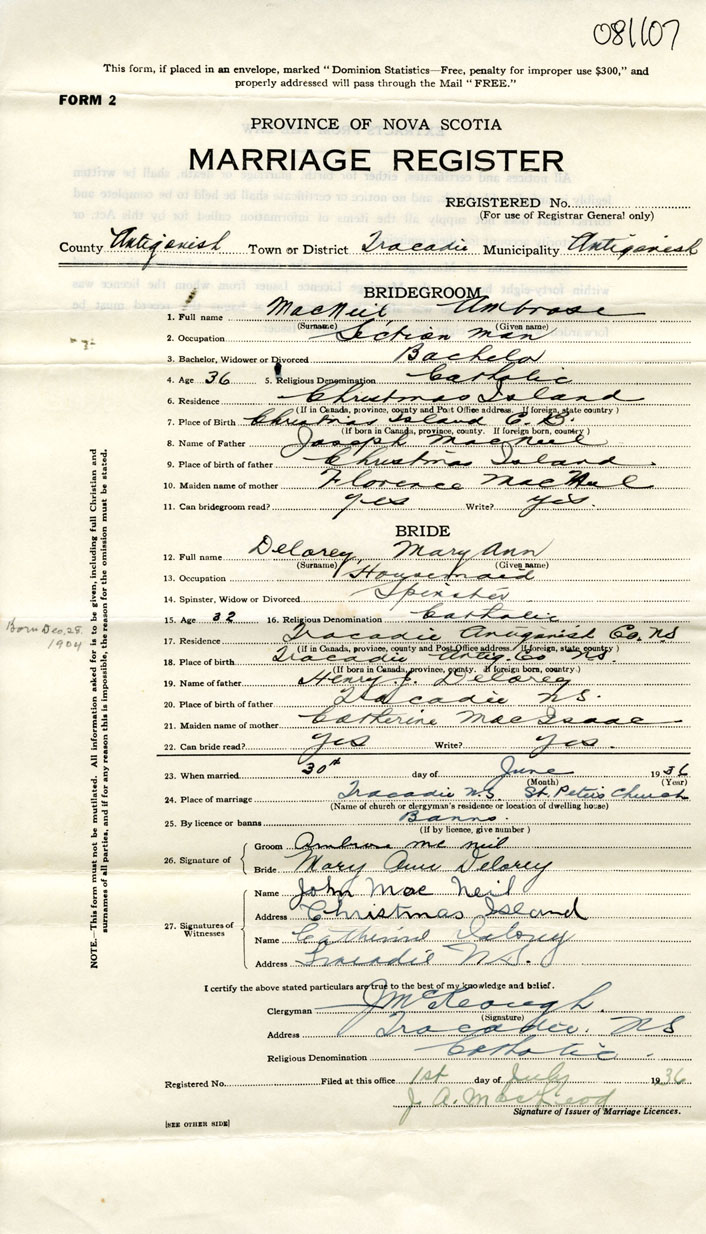 081107
This form, if placed in an envelope, marked "Dominion Statistics—Free, penalty for improper use $300," and
properly addressed will pass through the Mail "FREE."
FORM 2
PROVINCE OF NOVA SCOTIA
MARRIAGE REGISTER
REGISTERED No.
(For use of Registrar General only)
County Antigonish Town or District Tracadie Municipality Antigonish
BRIDEGROOM
1. Full name MacNeil Ambrose
(Surname) (Given name)
2. Occupation Section man
3. Bachelor, Widower or Divorced Bachelor
4. Age 36 5. Religious Denomination Catholic
6. Residence Christmas Island
(If in Canada, province, county and Post Office address. If foreign, state country)
7. Place of Birth Christmas Island C.B.
(If born in Canada, province, county. If foreign born, country.)
8. Name of Father Joseph MacNeil
9. Place of birth of father Christmas Island.
10. Maiden name of mother Florence MacNeil
11. Can bridegroom read? yes Write? yes.
BRIDE
12. Full name Delorey, Mary Ann
(Surname) (Given name)
13. Occupation Housemaid
14. Spinster, Widow or Divorced Spinster
15. Age 32 16. Religious Denomination Catholic
Born Dec. 28.
1904
17. Residence Tracadie Antigonish Co. NS
(If in Canada, province, county and Post Office address. If foreign, state country.)
18. Place of birth Tracadie Antig Co. NS.
(If born in Canada, province, county. If foreign born, country.)
19. Name of father Henry J. Delorey
20. Place of birth of father Tracadie NS.
21. Maiden name of mother Catherine MacIsaac
22. Can bride read? yes Write? yes.
23. When married 30th day of June 1936
(Month) (Year)
24. Place of marriage Tracadie N.S. St. Peters Church
(Name of church or clergyman's residence or location of dwelling house)
25. By licence or banns Banns.
(If by licence, give number)
26. Signature of
Groom Ambrose mc neil
Bride Mary Ann Delorey
27. Signatures of Witnesses
Name John Mac Neil
Address Christmas Island
Name Catherine Delorey
Address Tracadie N.S.
I certify the above stated particulars are true to the best of my knowledge and belief.
Clergyman J McKeough
(Signature)
Address Tracadie. NS
Religious Denomination Catholic.
Registered No. Filed at this office 1st day of July 1936
J. A. MacLeod
Signature of Issuer of Marriage Licences.
[SEE OTHER SIDE]
NOTE.—This form must not be mutilated. All information asked for is to be given, including full Christian and
surnames of all parties, and if for any reason this is impossible, the reason for the omission must be stated.